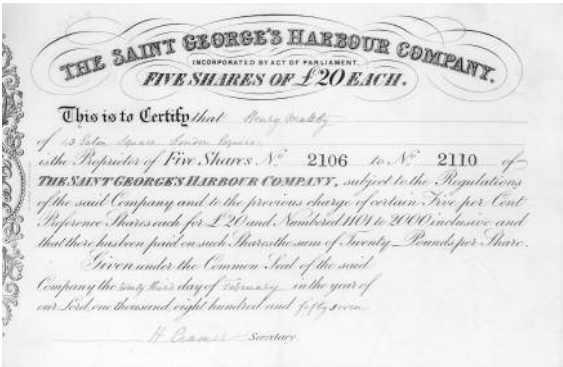 THE SAINT GEORGE'S HARBOUR COMPANY.
INCORPORATED BY ACT OF PARLIAMENT.
FIVE SHARES OF £20 EACH.
This is to Certify that Henry Maltby
of 13 Eaton Square London Esquire
is the Proprietor of Five Shares No. 2106 to No. 2110 of
THE SAINT GEORGE'S HARBOUR COMPANY, subject to the Regulations
of the said Company and to the previous charge of certain Five per Cent
Preference Shares each for £20 and Numbered 1101 to 2000 inclusive and
that there has been paid on such Shares the sum of Twenty Pounds per Share.
Given under the Common Seal of the said
Company the twenty third day of February in the year of
our Lord, one thousand, eight hundred and fifty seven
H. Secretary.